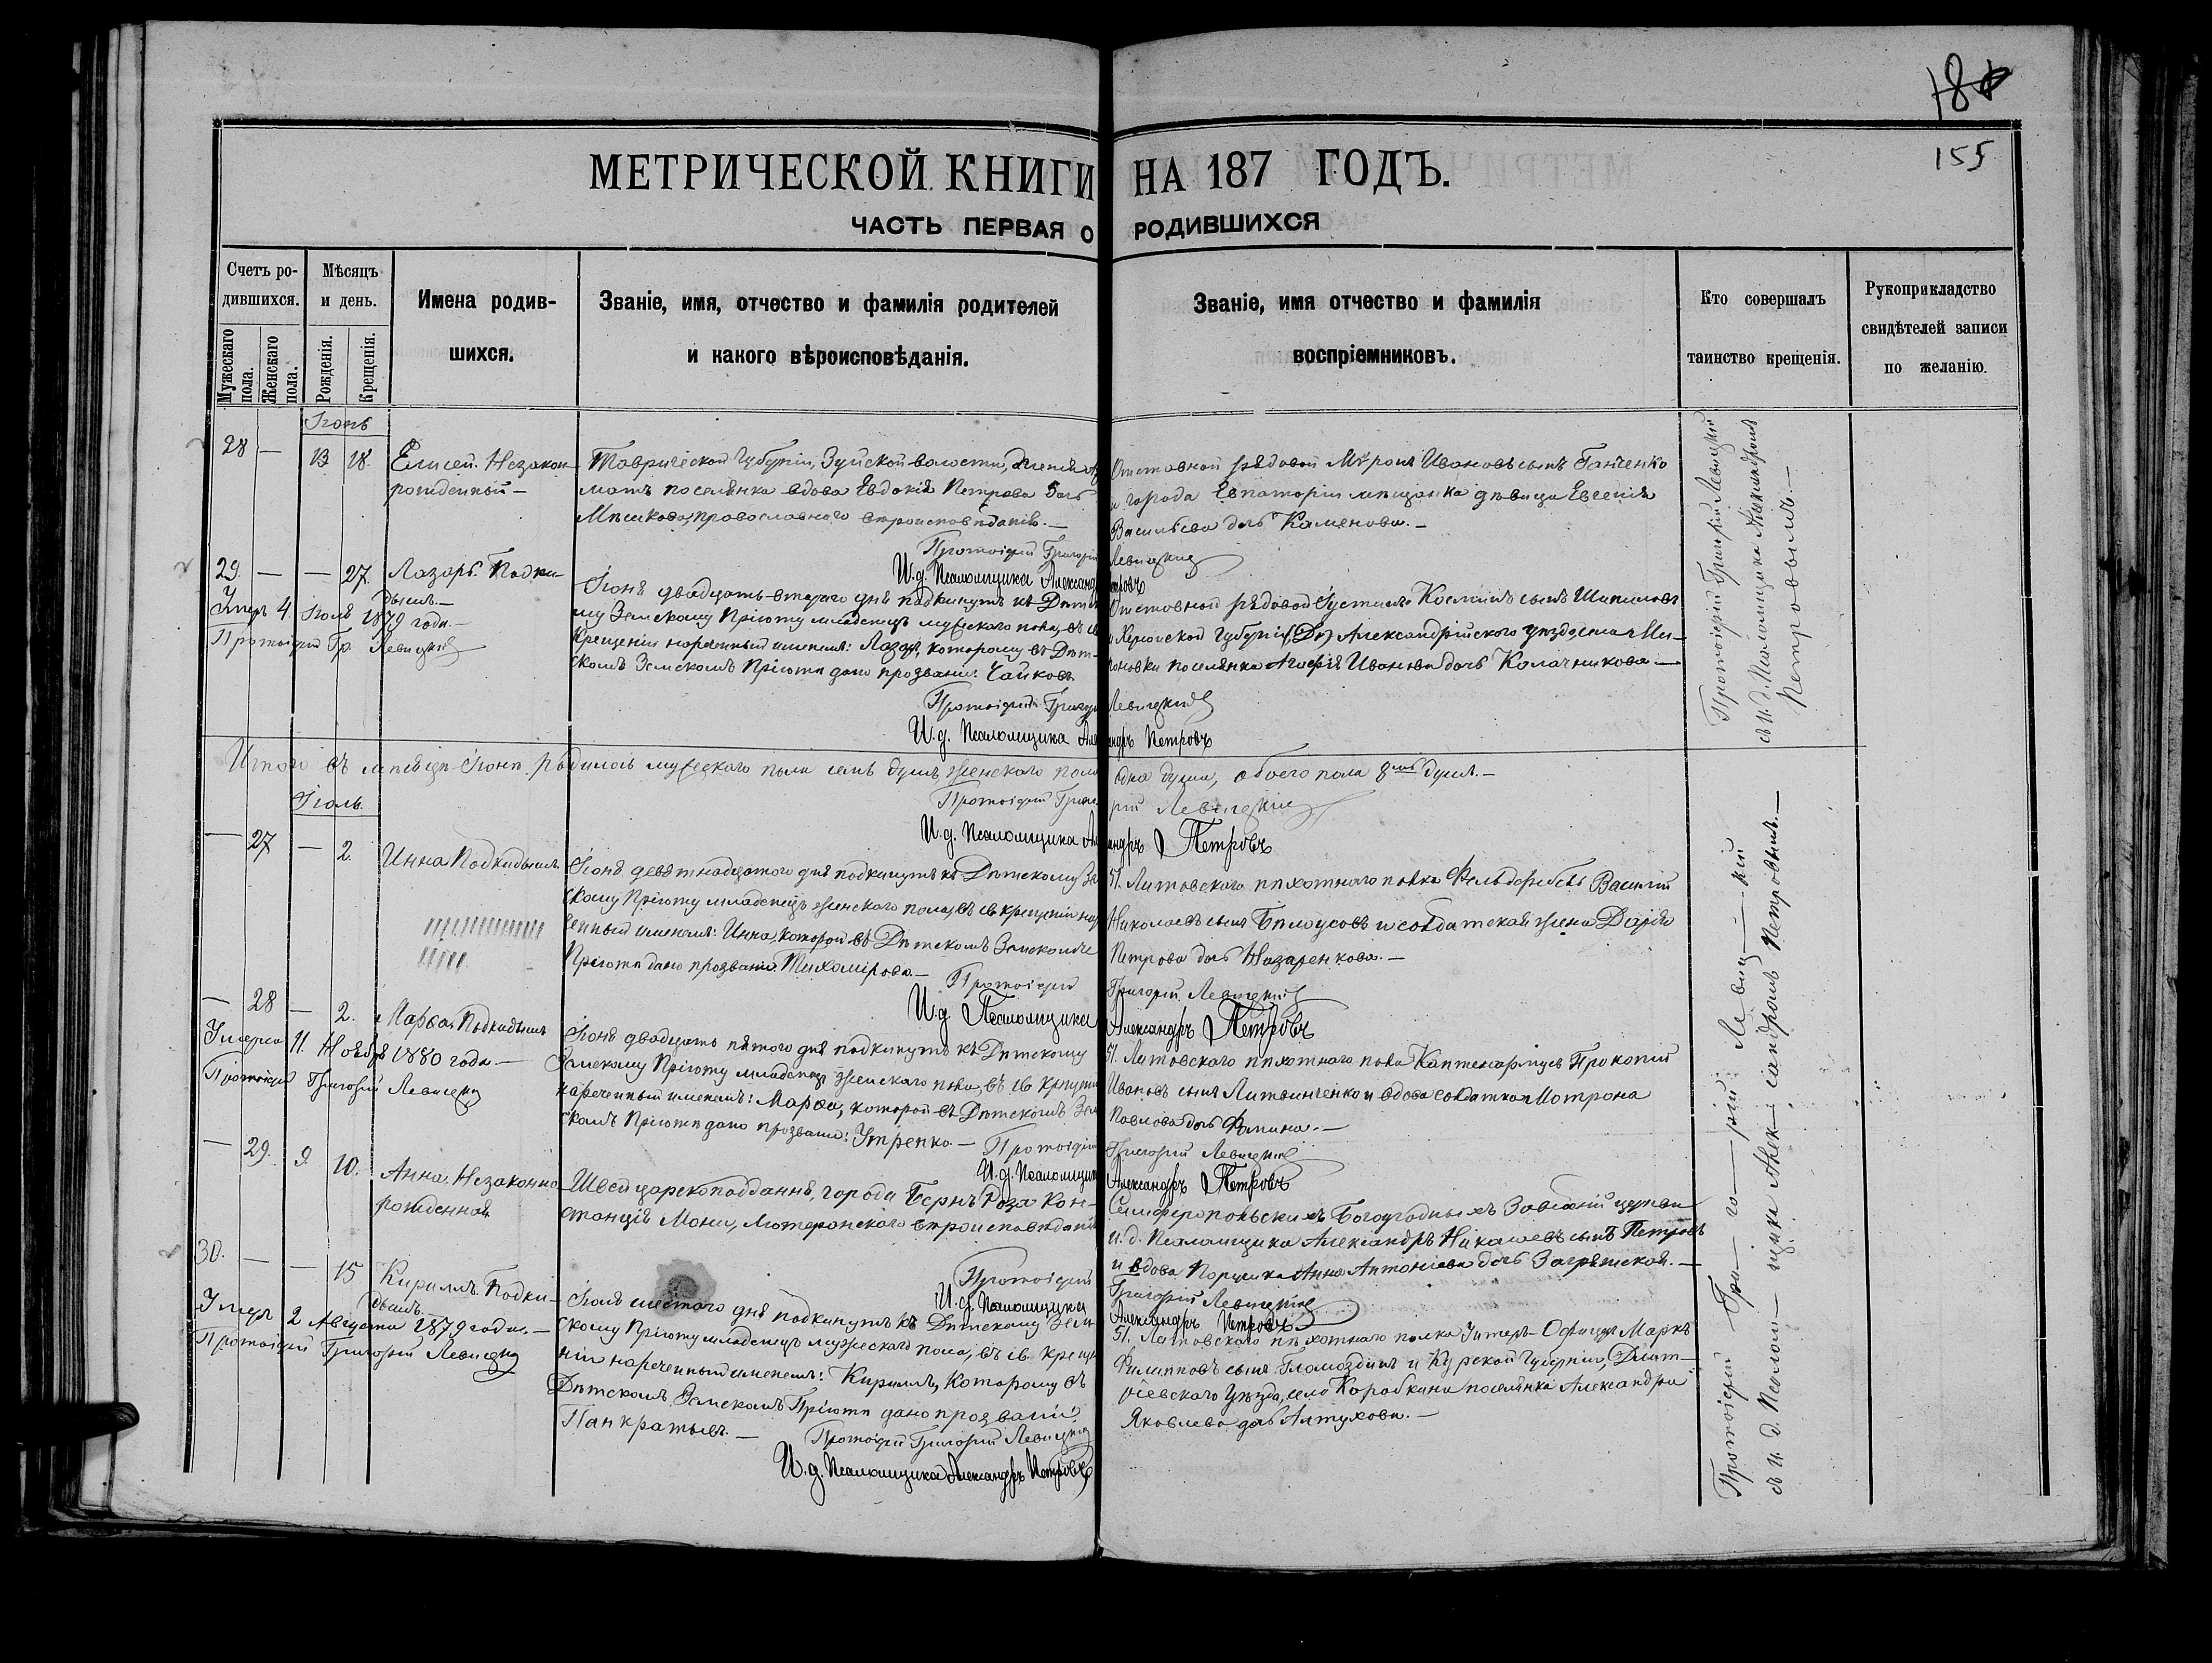 155
МЕТРИЧЕСКОЙ КНИГИ НА 187 ГОДЪ.
ЧАСТЬ ПЕРВАЯ О РОДИВШИХСЯ
Счетъ ро-
дившихся.
Мужескаго пола.
Женскаго пола.
Мѣсяцъ
и день.
Рожденія.
Крещенія.
Имена родив-
шихся.
Званіе, имя, отчество и фамилія родителей
и какого вѣроисповѣданія.
Званіе, имя отчество и фамилія
воспріемниковъ.
Кто совершалъ
таинство крещенія.
Рукоприкладство
свидѣтелей записи
по желанію.
Іюнь
28 — 13 18. Елисей. Незакон-
рожденный —
Таврической Губерніи, Зуйской волости,
поселянка вдова Евдокія Петрова дочь
Мѣшкова, православнаго вѣроисповѣданія. —
Отставной рядовой Міронъ Ивановъ сынъ Ганченко
и города Евпаторіи мѣщанка дѣвица Евгенія
Васильева дочь Каменова. —
Протоіерей Григорій Левицкій
И. д. Псаломщика Александръ Петровъ
29. — — 27. Лазарь. Подки-
дышъ. —
Умеръ 4 Іюля 1879 года. —
Протоіерей Гр. Левицкій
Іюня двадцать втораго дня подкинутъ къ Дѣтско-
му Земскому Пріюту младенецъ мужескаго пола, въ св.
крещеніи нареченный именемъ: Лазарь, которому въ Дѣт-
скомъ Земскомъ Пріютѣ дано прозваніе: Чайковъ
Отставной рядовой Іустинъ Космийъ сынъ Шипиловъ
и Херсонской Губерніи, Александрійскаго уѣзда
поселянка Агафія Иванова дочь Колачникова. —
Протоіерей Григорій Левицкій
И. д. Псаломщика Александръ Петровъ
Протоіерей Григорій Левицкій
съ И. д. Псаломщика Александромъ
Петровымъ. —
Итого въ мѣсяцѣ Іюнѣ родилось мужескаго пола семь душъ женскаго пола одна душа, обоего пола 8мь душъ. —
Протоіерей Григорій Левицкій
И. д. Псаломщика Александръ Петровъ
Іюль.
— 27 — 2. Инна Подкидышъ.
Іюня девятнадцатого дня подкинутъ къ Дѣтскому Зем-
скому Пріюту младенецъ женскаго пола, въ св. крещеніи наре-
ченный именемъ: Инна, которой въ Дѣтскомъ Земскомъ
Пріютѣ дано прозваніе: Тихомірова. —
51. Литовскаго пѣхотнаго полка Фельдфебель Василій
Николаевъ сынъ Бѣлоусовъ и солдатская жена Дарія
Петрова дочь Назаренкова. —
Протоіерей Григорій Левицкій
И. д. Псаломщика Александръ Петровъ
— 28 — 2. Марѳа Подкидышъ
Умерла 11. Ноября 1880 года. —
Протоіерей Григорій Левицкій
Іюня двадцать пятого дня подкинутъ къ Дѣтскому
Земскому Пріюту младенецъ женскаго пола, въ св. крещеніи
нареченный именемъ: Марѳа, которой въ Дѣтскомъ Зем-
скомъ Пріютѣ дано прозваніе: Утренко. —
51. Литовскаго пѣхотнаго полка Каптенармусъ Прокопій
Ивановъ сынъ Литвинченко и вдова солдатка Мотрона
Павлова дочь Фомина. —
Протоіерей Григорій Левицкій
И. д. Псаломщика Александръ Петровъ
— 29. 9. 10. Анна. Незаконно-
рожденная
Швейцарскоподданная, города Бернъ Роза Кон-
станція Мони, Лютеранскаго вѣроисповѣданія
Симферопольскихъ Богоугодныхъ Заведеній церкви
и. д. Псаломщика Александръ Никалаевъ сынъ Петровъ
и вдова Поручика Анна Антоніева дочь Загряжская. —
Протоіерей Григорій Левицкій
И. д. Псаломщика Александръ Петровъ
30. — — 15 Кириллъ. Подки-
дышъ. —
Умеръ 2 Августа 1879 года. —
Протоіерей Григорій Левицкій
Іюля шестого дня подкинутъ къ Дѣтскому Зем-
скому Пріюту младенецъ мужескаго пола, въ св. креще-
ніи нареченный именемъ: Кириллъ, которому въ
Дѣтскомъ Земскомъ Пріютѣ дано прозваніе:
Панкратьевъ. —
51. Литовскаго пѣхотнаго полка Унтеръ-Офицеръ Маркъ
Филипповъ сынъ Гломоздинъ и Курской Губерніи, Дмит-
ріевскаго уѣзда, села Коробкина поселянка Александра
Яковлева дочь Алтухова. —
Протоіерей Григорій Левицкій
И. д. Псаломщика Александръ Петровъ
Протоіерей Гри-го-рій Левиц-кій
съ и. д. Псалом-щика Алек-сандромъ Петровымъ. —